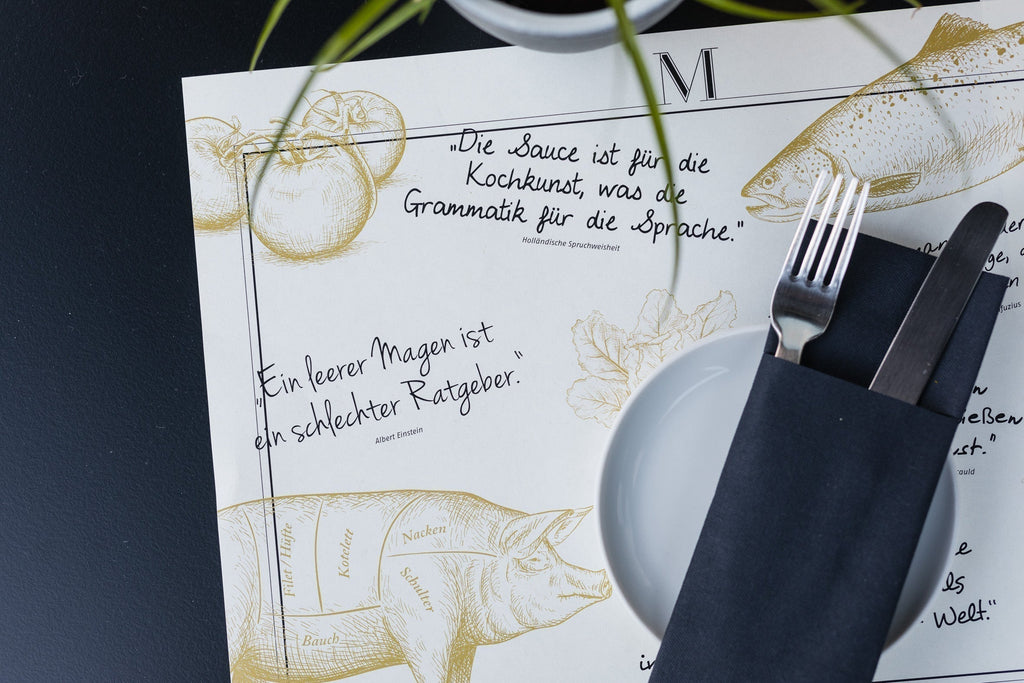 M
„Die Sauce ist für die
Kochkunst, was die
Grammatik für die Sprache."
Holländische Spruchweisheit
„Ein leerer Magen ist
ein schlechter Ratgeber."
Albert Einstein
Filet / Hüfte
Kotelett
Nacken
Schulter
Bauch
Welt."